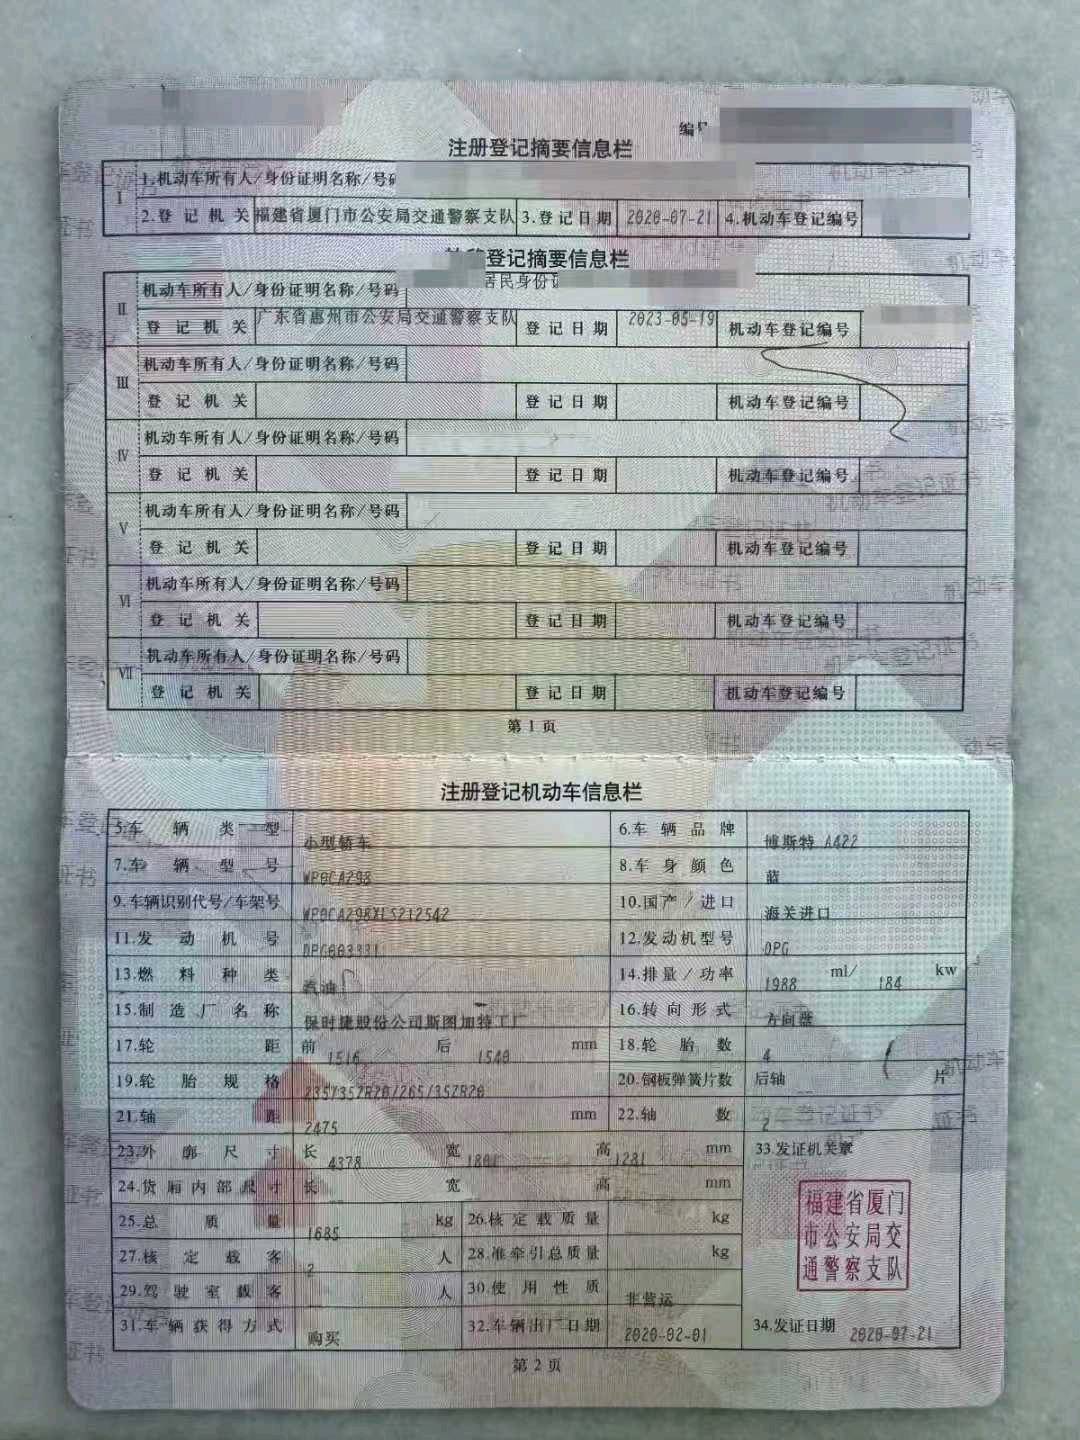 编号
注册登记摘要信息栏
I 1.机动车所有人/身份证明名称/号码
2.登记机关 福建省厦门市公安局交通警察支队 3.登记日期 2020-07-21 4.机动车登记编号
登记摘要信息栏
II 机动车所有人/身份证明名称/号码 居民身份证
登记机关 广东省惠州市公安局交通警察支队 登记日期 2023-05-19 机动车登记编号
III 机动车所有人/身份证明名称/号码
登记机关 登记日期 机动车登记编号
IV 机动车所有人/身份证明名称/号码
登记机关 登记日期 机动车登记编号
V 机动车所有人/身份证明名称/号码
登记机关 登记日期 机动车登记编号
VI 机动车所有人/身份证明名称/号码
登记机关 登记日期 机动车登记编号
VII 机动车所有人/身份证明名称/号码
登记机关 登记日期 机动车登记编号
第1页
注册登记机动车信息栏
5.车辆类型 小型轿车 6.车辆品牌 博斯特 A422
7.车辆型号 WP0CA298 8.车身颜色 蓝
9.车辆识别代号/车架号 WP0CA298XLS212542 10.国产/进口 海关进口
11.发动机号 DPG003331 12.发动机型号 DPG
13.燃料种类 汽油 14.排量/功率 1988 ml/ 184 kw
15.制造厂名称 保时捷股份公司斯图加特工厂 16.转向形式 方向盘
17.轮距 前 1516 后 1540 mm 18.轮胎数 4
19.轮胎规格 235/35ZR20/265/35ZR20 20.钢板弹簧片数 后轴 -- 片
21.轴距 2475 mm 22.轴数 2
23.外廓尺寸 长 4378 宽 1801 高 1281 mm 33.发证机关章
24.货厢内部尺寸 长 宽 高 mm
25.总质量 1685 kg 26.核定载质量 kg
27.核定载客 2 人 28.准牵引总质量 kg
29.驾驶室载客 -- 人 30.使用性质 非营运
31.车辆获得方式 购买 32.车辆出厂日期 2020-02-01 34.发证日期 2020-07-21
福建省厦门
市公安局交
通警察支队
第2页